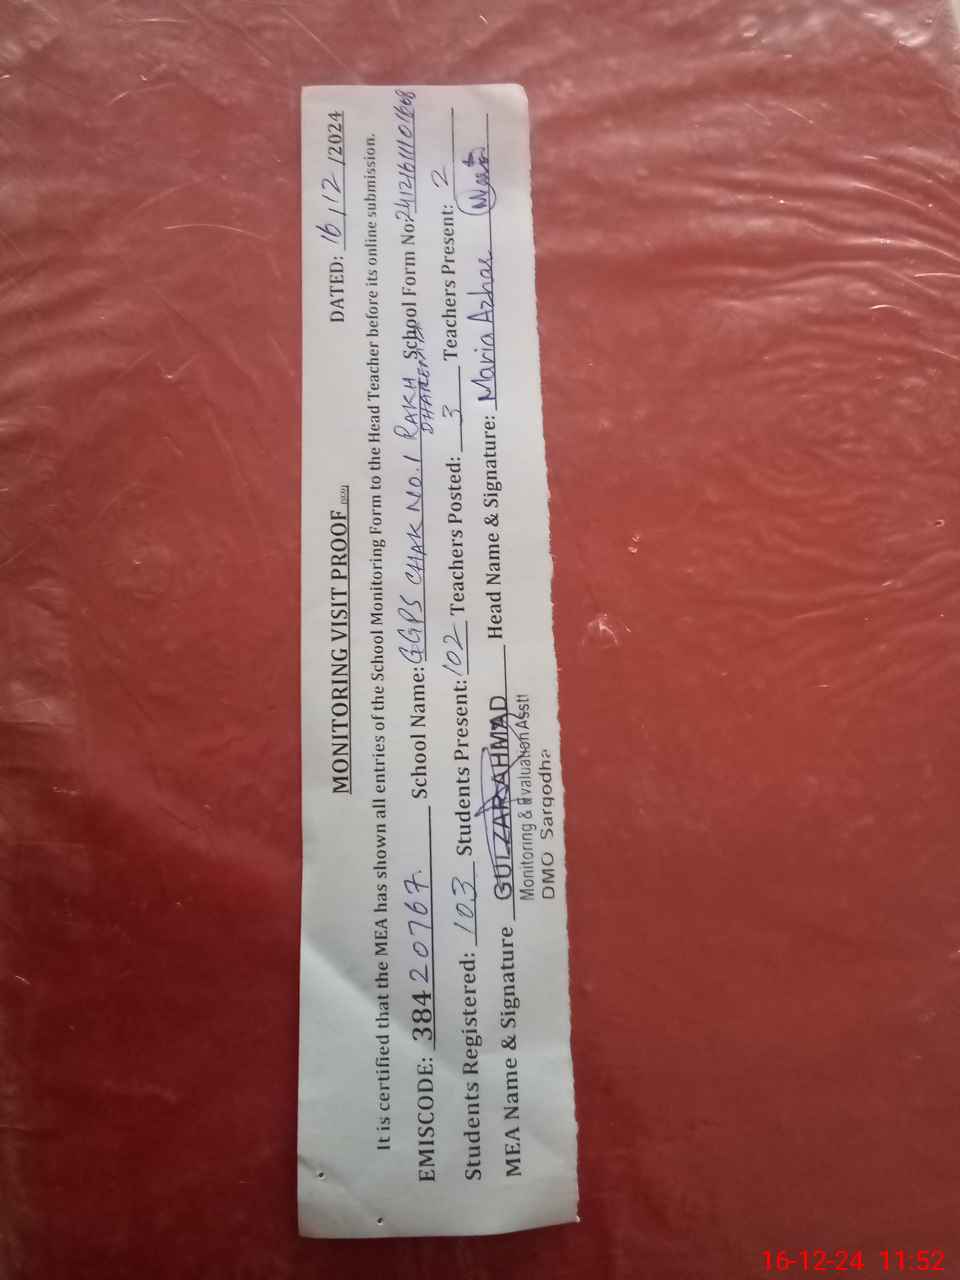 MONITORING VISIT PROOF
DATED: 16/12/2024
It is certified that the MEA has shown all entries of the School Monitoring Form to the Head Teacher before its online submission.
EMISCODE: 38420767 School Name: GGPS CHAK NO.1 RAKH School Form No:
Students Registered: 103 Students Present: 102 Teachers Posted: 3 Teachers Present: 2
MEA Name & Signature GULZAR AHMAD Head Name & Signature: Maria Azhar
Monitoring & Evaluation Asstt
DMO Sargodha
16-12-24 11:52